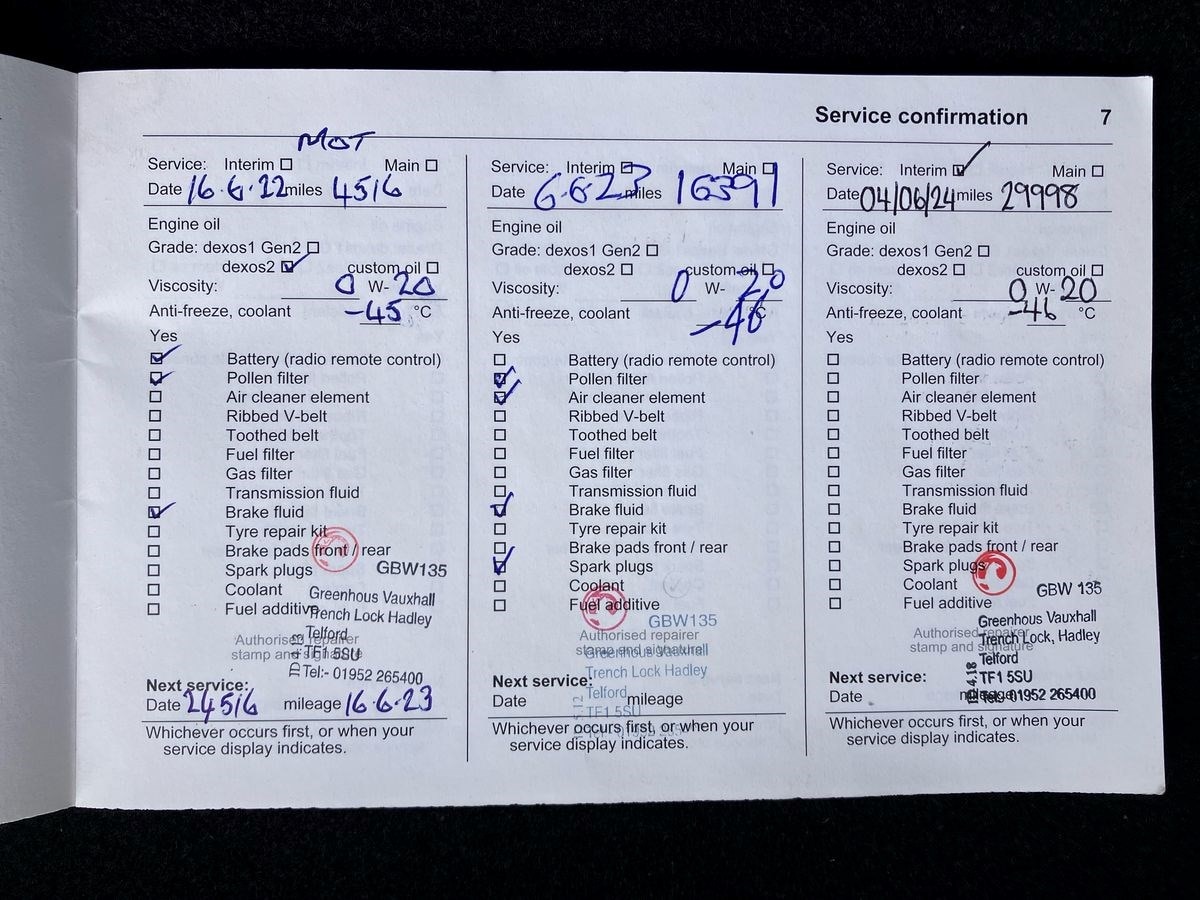 Service confirmation 7
MOT
Service: Interim Main
Date 16·6·22 miles 4516
Engine oil
Grade: dexos1 Gen2
dexos2 custom oil
Viscosity: 0 W- 20
Anti-freeze, coolant -45 °C
Yes
Battery (radio remote control)
Pollen filter
Air cleaner element
Ribbed V-belt
Toothed belt
Fuel filter
Gas filter
Transmission fluid
Brake fluid
Tyre repair kit
Brake pads front / rear
Spark plugs
Coolant
Fuel additive
GBW135
Greenhous Vauxhall
Trench Lock Hadley
Telford
TF1 5SU
Tel:- 01952 265400
Authorised repairer
stamp and signature
Next service:
Date 24516 mileage 16·6·23
Whichever occurs first, or when your
service display indicates.
Service: Interim Main
Date 6·6·23 miles 16391
Engine oil
Grade: dexos1 Gen2
dexos2 custom oil
Viscosity: 0 W- 20
Anti-freeze, coolant -46 °C
Yes
Battery (radio remote control)
Pollen filter
Air cleaner element
Ribbed V-belt
Toothed belt
Fuel filter
Gas filter
Transmission fluid
Brake fluid
Tyre repair kit
Brake pads front / rear
Spark plugs
Coolant
Fuel additive
GBW135
Authorised repairer
stamp and signature
Greenhous Vauxhall
Trench Lock Hadley
Telford
TF1 5SU
Next service:
Date mileage
Whichever occurs first, or when your
service display indicates.
Service: Interim Main
Date 04/06/24 miles 29998
Engine oil
Grade: dexos1 Gen2
dexos2 custom oil
Viscosity: 0 W- 20
Anti-freeze, coolant -46 °C
Yes
Battery (radio remote control)
Pollen filter
Air cleaner element
Ribbed V-belt
Toothed belt
Fuel filter
Gas filter
Transmission fluid
Brake fluid
Tyre repair kit
Brake pads front / rear
Spark plugs
Coolant
Fuel additive
GBW 135
Greenhous Vauxhall
Trench Lock, Hadley
Telford
TF1 5SU
Tel:- 01952 265400
Authorised repairer
stamp and signature
Next service:
Date mileage
Whichever occurs first, or when your
service display indicates.